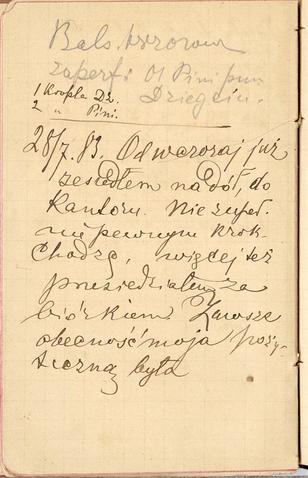 Bals. brzozowy
zaperf: Ol Pini pum
Dziegciu.
1 Kropla Dz.
2 " Pini.
28/7. 83. Od wczoraj już
zeszedłem na dół, do
Kantoru. Nie zupeł-
nie pewnym krok.
Chodzę, więcej też
przesiedziałem za
biórkiem. Zawsze
obecność moja poży-
teczną była